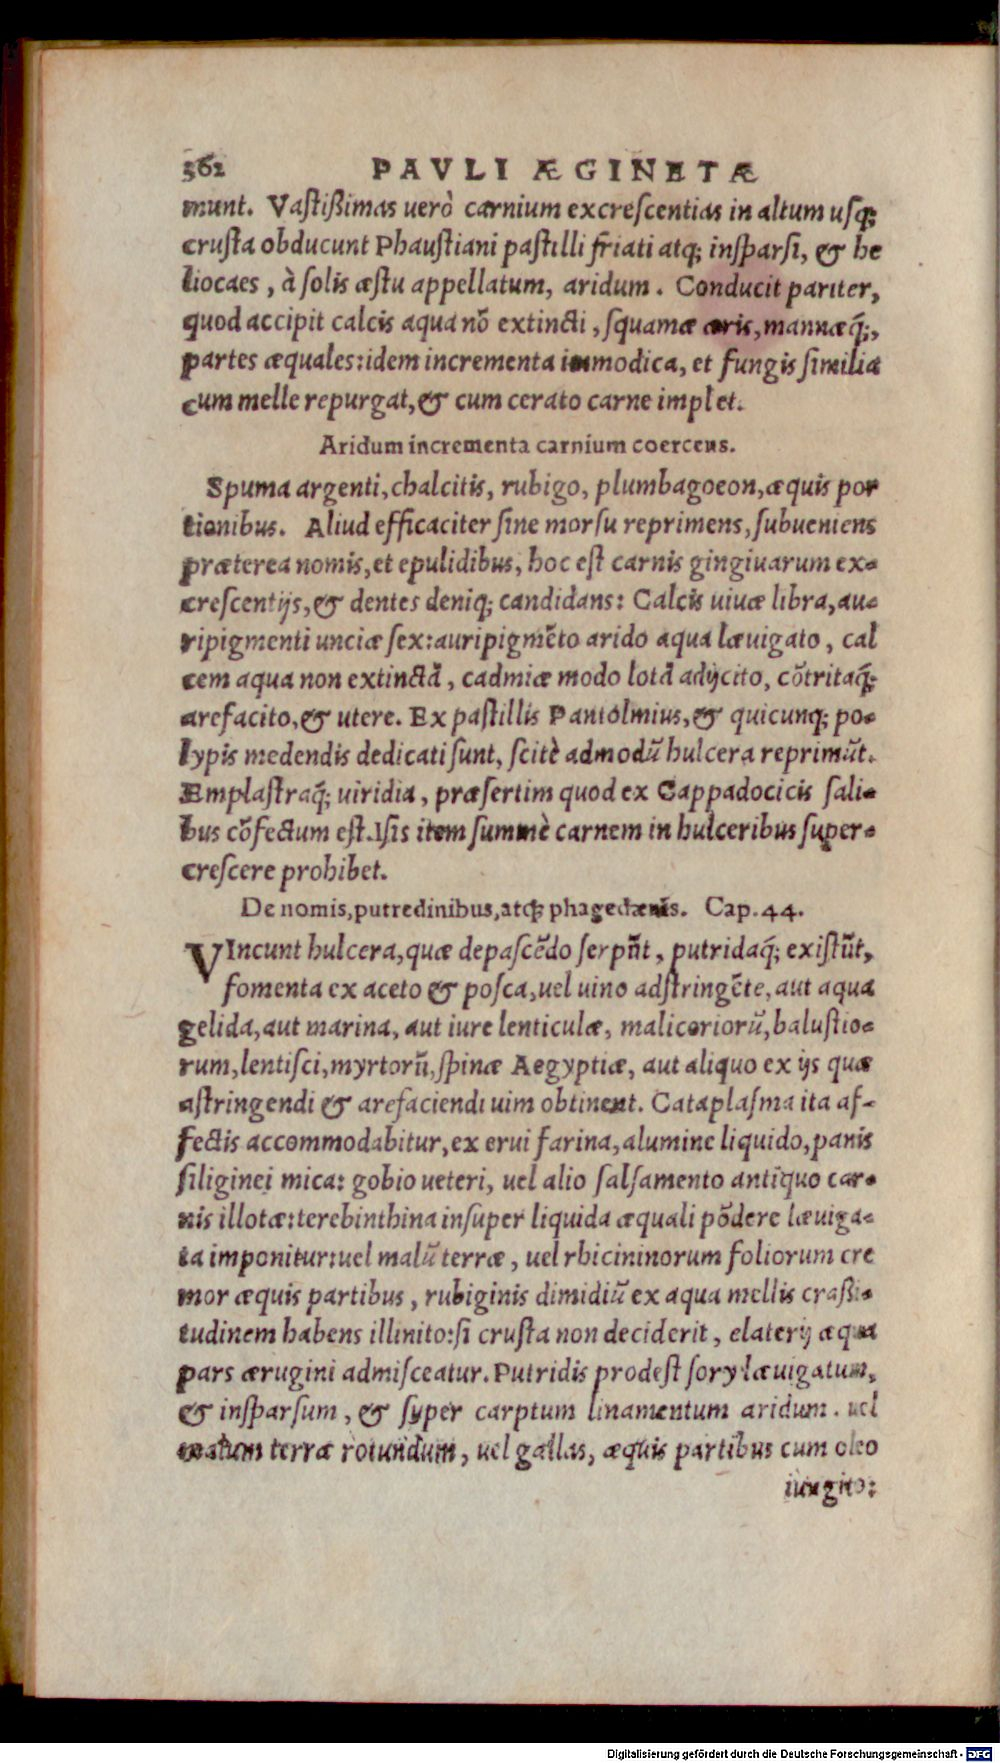 362 PAVLI ÆGINETÆ
munt. Vastißimas uerò carnium excrescentias in altum usq;
crusta obducunt Phaustiani pastilli friati atq; insparsi, & he
liocaes, à solis æstu appellatum, aridum. Conducit pariter,
quod accipit calcis aqua nõ extincti, squamæ æris, mannæq́;,
partes æquales: idem incrementa immodica, et fungis similia
cum melle repurgat, & cum cerato carne implet.
Aridum incrementa carnium coercens.
Spuma argenti, chalcitis, rubigo, plumbagoeon, æquis por
tionibus. Aliud efficaciter sine morsu reprimens, subueniens
præterea nomis, et epulidibus, hoc est carnis gingiuarum ex-
crescentijs, & dentes deniq; candidans: Calcis uiuæ libra, au-
ripigmenti unciæ sex: auripigmẽto arido aqua læuigato, cal
cem aqua non extinctã, cadmiæ modo lotã adijcito, cõtritaq́;
arefacito, & utere. Ex pastillis Pantolmius, & quicunq; po-
lypis medendis dedicati sunt, scitè admodũ hulcera reprimũt.
Emplastraq́; uiridia, præsertim quod ex Cappadocicis sali-
bus cõfectum est. Isis item summè carnem in hulceribus super-
crescere prohibet.
De nomis, putredinibus, atq; phagedænis. Cap. 44.
VIncunt hulcera, quæ depascẽdo serpũt, putridaq́; existũt,
fomenta ex aceto & posca, uel uino adstringẽte, aut aqua
gelida, aut marina, aut iure lenticulæ, malicoriorũ, balustio-
rum, lentisci, myrtorũ, spinæ Aegyptiæ, aut aliquo ex ijs quæ
astringendi & arefaciendi uim obtinent. Cataplasma ita af-
fectis accommodabitur, ex erui farina, alumine liquido, panis
siliginei mica: gobio ueteri, uel alio salsamento antiquo car-
nis illotæ: terebinthina insuper liquida æquali põdere læuiga-
ta imponitur: uel malũ terræ, uel rhicininorum foliorum cre
mor æquis partibus, rubiginis dimidiũ ex aqua mellis craßi-
tudinem habens illinito: si crusta non deciderit, elaterij æqua
pars ærugini admisceatur. Putridis prodest sory læuigatum,
& insparsum, & super carptum linamentum aridum. uel
malum terræ rotundum, uel gallas, æquis partibus cum oleo
iungito:
Digitalisierung gefördert durch die Deutsche Forschungsgemeinschaft - DFG